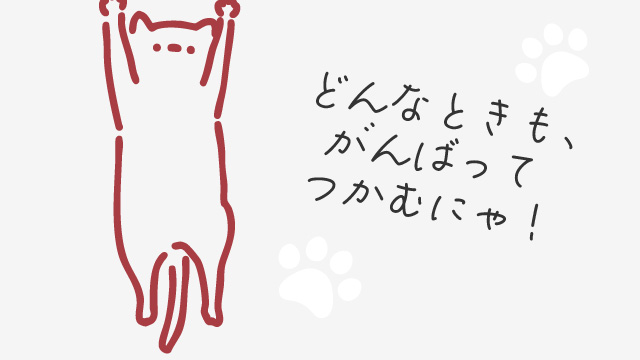 どんなときも、
がんばって
つかむにゃ！